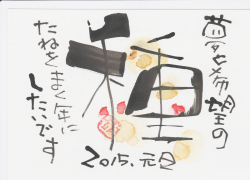 夢と希望の
種
たねをまく年に
したいです
2015.元旦